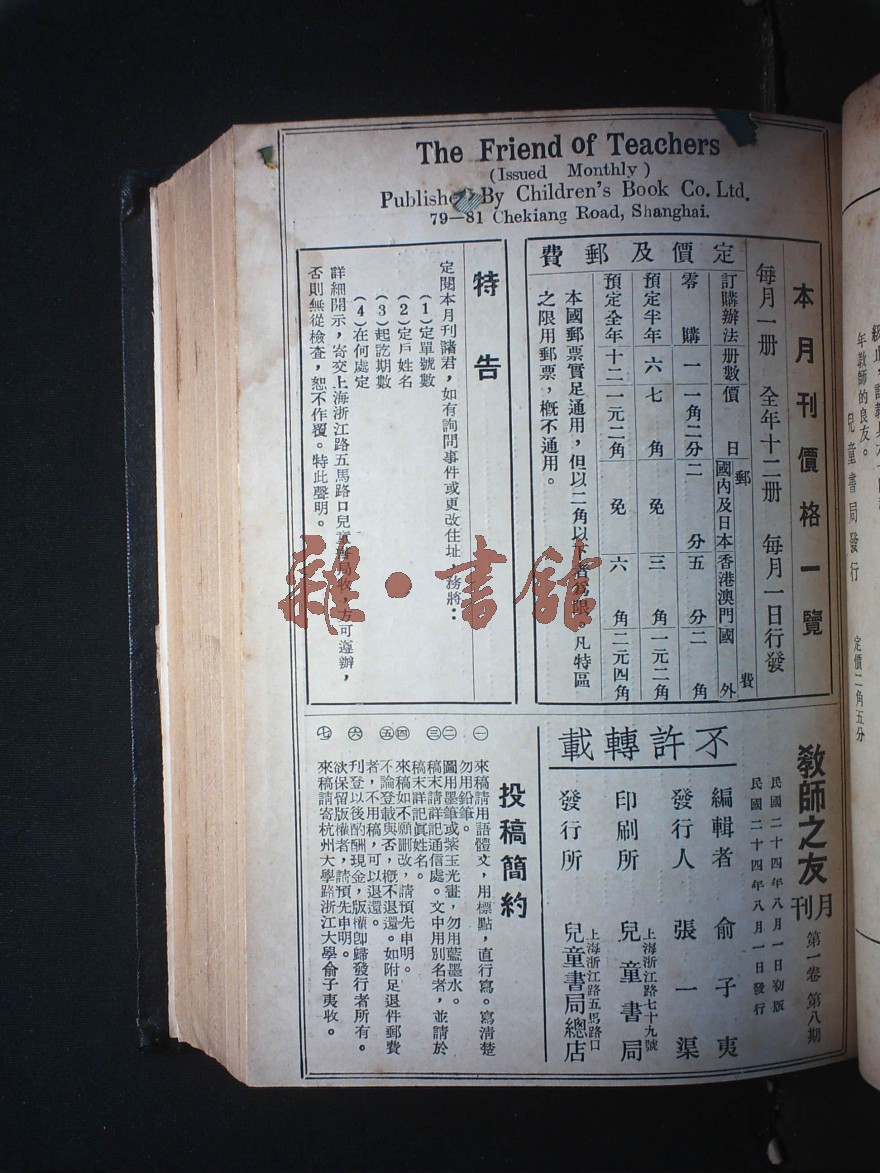 The Friend of Teachers
(Issued Monthly)
Published By Children's Book Co. Ltd.
79—81 Chekiang Road, Shanghai.
本月刊價格一覽
每月一册 全年十二册 每月一日行發
定價及郵費
訂購辦法 册數 價目 郵費 國內及日本 香港澳門 國外
零購 一 一角二分 二分 五分 二角
預定半年 六 七角 免 三角 一元二角
預定全年 十二 一元二角 免 六角 二元四角
本國郵票實足通用,但以二角以下者爲限。凡特區
之限用郵票,槪不通用。
特告
定閱本月刊諸君,如有詢問事件或更改住址,務將:
(1)定單號數
(2)定戶姓名
(3)起訖期數
(4)在何處定
詳細開示,寄交上海浙江路五馬路口兒童書局收,方可遵辦,
否則無從檢查,恕不作覆。特此聲明。
教師之友月刊 第一卷 第八期
民國二十四年八月一日初版
民國二十四年八月一日發行
不許轉載
編輯者 俞子夷
發行人 張一渠
印刷所 上海浙江路七十九號 兒童書局
發行所 上海浙江路五馬路口 兒童書局總店
投稿簡約
㊀ 來稿請用語體文,用標點,直行寫。寫清楚
勿用鉛筆。
㊁ 圖用墨筆或紫玉光畫,勿用藍墨水。
㊂ 稿末請詳記通信處。文中用別名者,並請於
稿末詳記眞姓名。
㊃ 來稿如不願刪改,請預先申明。
㊄ 不論登載與否,槪不退還。如附足退件郵費
者,不用稿,可以退還。
㊅ 刊登以後酌酬現金,版權卽歸發行者所有。
欲保留版權者,請預先申明。
㊆ 來稿請寄杭州大學路浙江大學俞子夷收。
雜·書館
年教師的良友。
兒童書局發行
定價二角五分